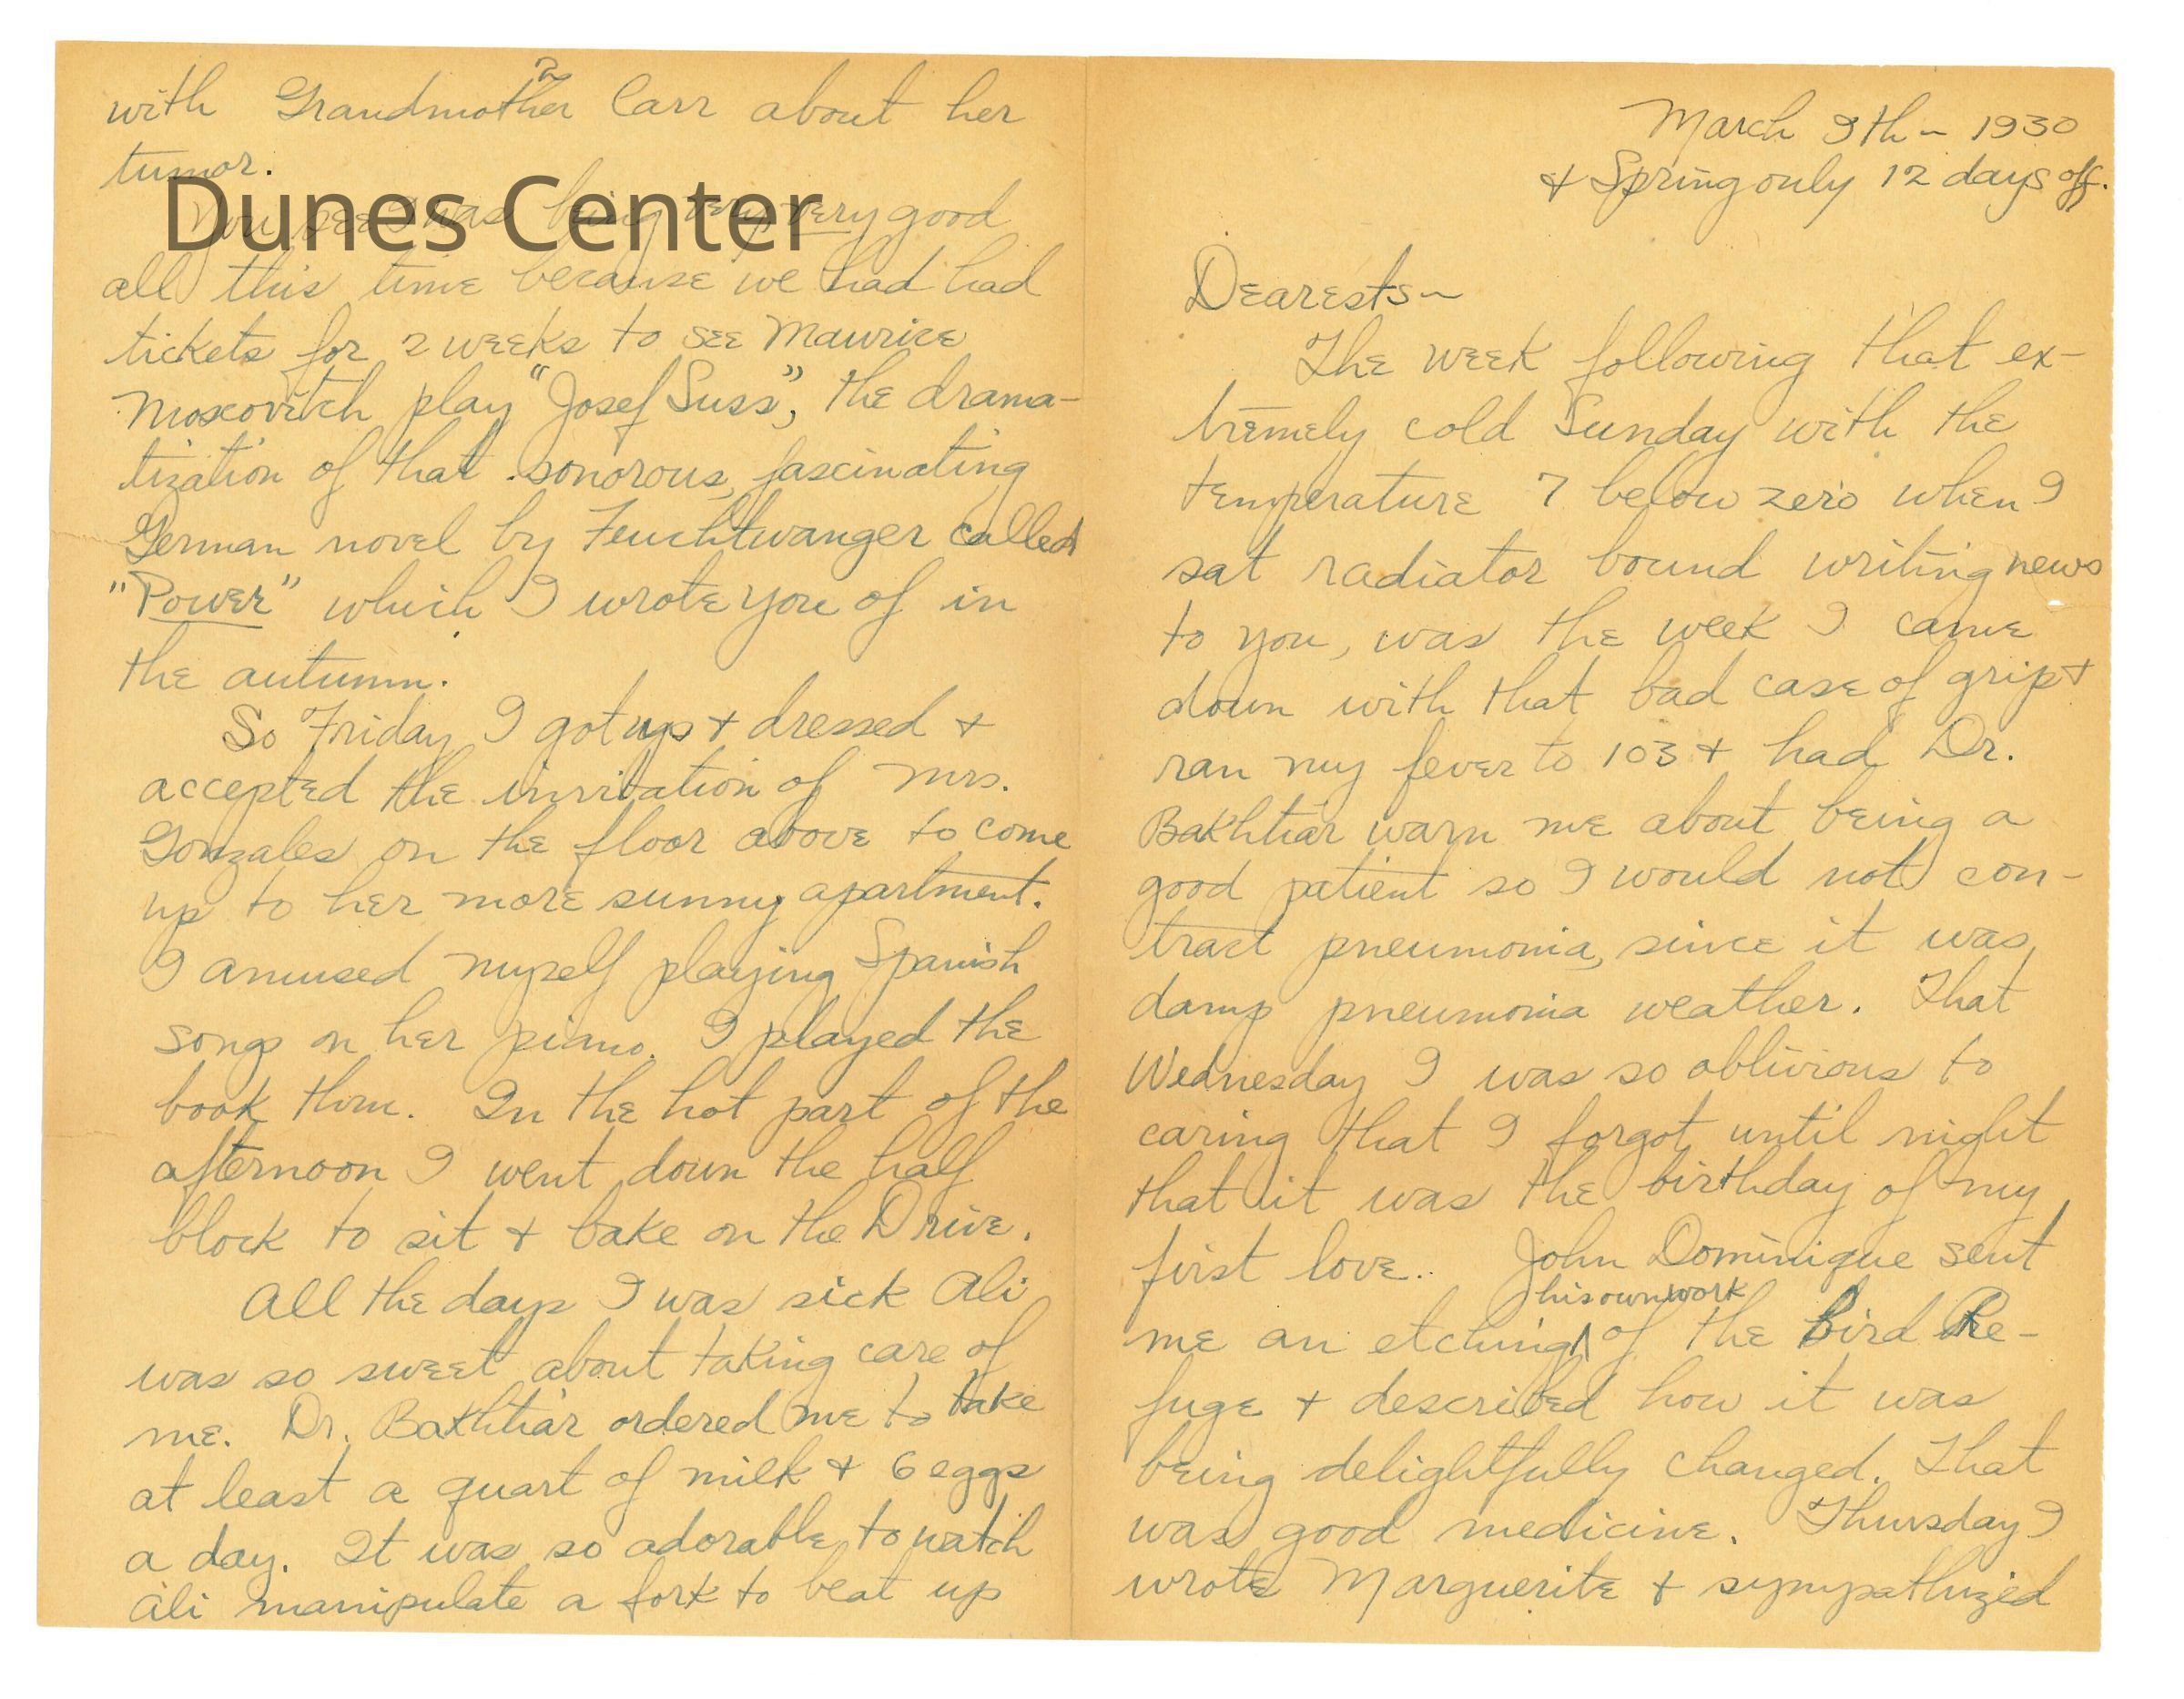 March 9th ~ 1930
& Spring only 12 days off.
Dearests ~
The week following that ex-
tremely cold Sunday with the
temperature 7 below zero when I
sat radiator bound writing news
to you, was the week I came
down with that bad case of grip &
ran my fever to 103 & had Dr.
Bakhtiar warn me about being a
good patient so I would not con-
tract pneumonia, since it was
damp pneumonia weather. That
Wednesday I was so oblivious to
caring that I forgot until night
that it was the birthday of my
first love.. John Dominique sent
his own work
me an etching of the Bird Re-
fuge & described how it was
being delightfully changed. That
was good medicine. Thursday I
wrote Marguerite & sympathized
2
with Grandmother Carr about her
tumor.
You see I was being very very good
all this time because we had had
tickets for 2 weeks to see Maurice
Moscovitch play "Josef Suss", the drama-
tization of that sonorous, fascinating
German novel by Feuchtwanger called
"Power" which I wrote you of in
the autumn.
So Friday I got up & dressed &
accepted the invitation of Mrs.
Gonzales on the floor above to come
up to her more sunny apartment.
I amused myself playing Spanish
songs on her piano. I played the
book thru. In the hot part of the
afternoon I went down the half
block to sit & bake on the Drive.
All the days I was sick Ali
was so sweet about taking care of
me. Dr. Bakhtiar ordered me to take
at least a quart of milk & 6 eggs
a day. It was so adorable to watch
Ali manipulate a fork to beat up
Dunes Center